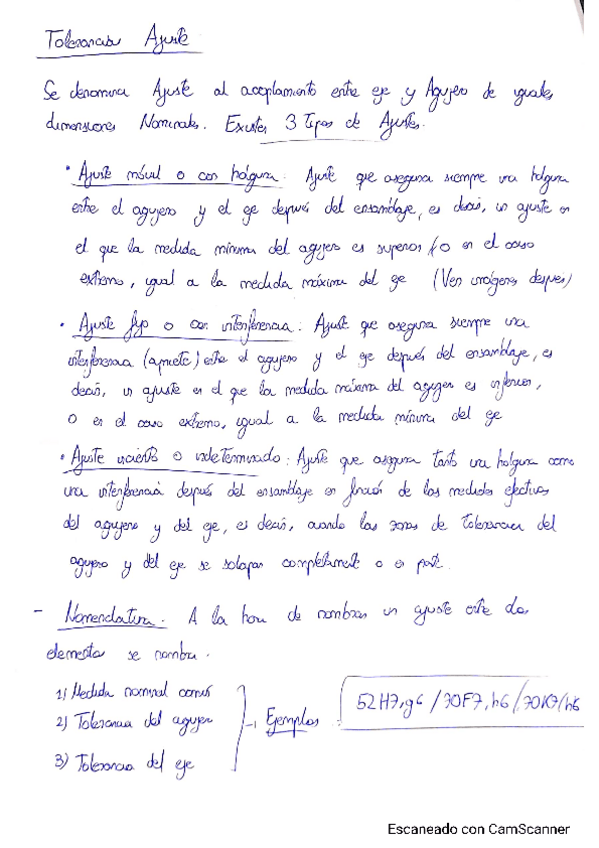 Tolerancias Ajuste
Se denomina Ajuste al acoplamiento entre eje y Agujero de iguales
dimensiones Nominales. Existen 3 Tipos de Ajustes.
• Ajuste móvil o con holgura: Ajuste que asegura siempre una holgura
entre el agujero y el eje después del ensamblaje, es decir, un ajuste en
el que la medida mínima del agujero es superior /o en el caso
extremo, igual a la medida máxima del eje (Ver imágenes después)
• Ajuste fijo o con interferencia: Ajuste que asegura siempre una
interferencia (apriete) entre el agujero y el eje después del ensamblaje, es
decir, un ajuste en el que la medida máxima del agujero es inferior,
o en el caso extremo, igual a la medida mínima del eje
• Ajuste incierto o indeterminado: Ajuste que asegura tanto una holgura como
una interferencia después del ensamblaje en función de las medidas efectivas
del agujero y del eje, es decir, cuando las zonas de Tolerancia del
agujero y del eje se solapan completamente o en parte.
- Nomenclatura. A la hora de nombrar un ajuste entre dos
elementos se nombra.
1) Medida nominal común
2) Tolerancia del agujero → Ejemplos: 52H7,g6 /70F7,h6/70K7/h6
3) Tolerancia del eje
Escaneado con CamScanner